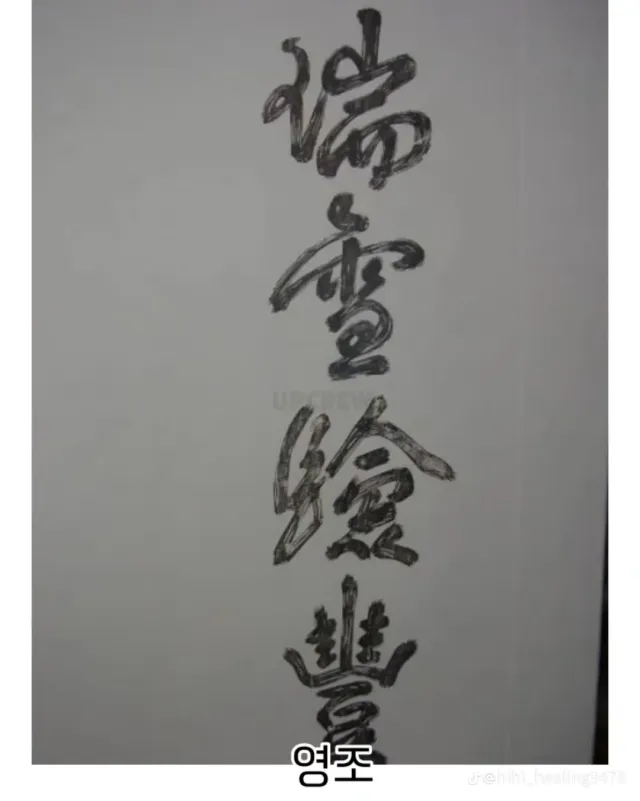 瑞雪験豐
UPCREW
영조
@hihi_healing9478